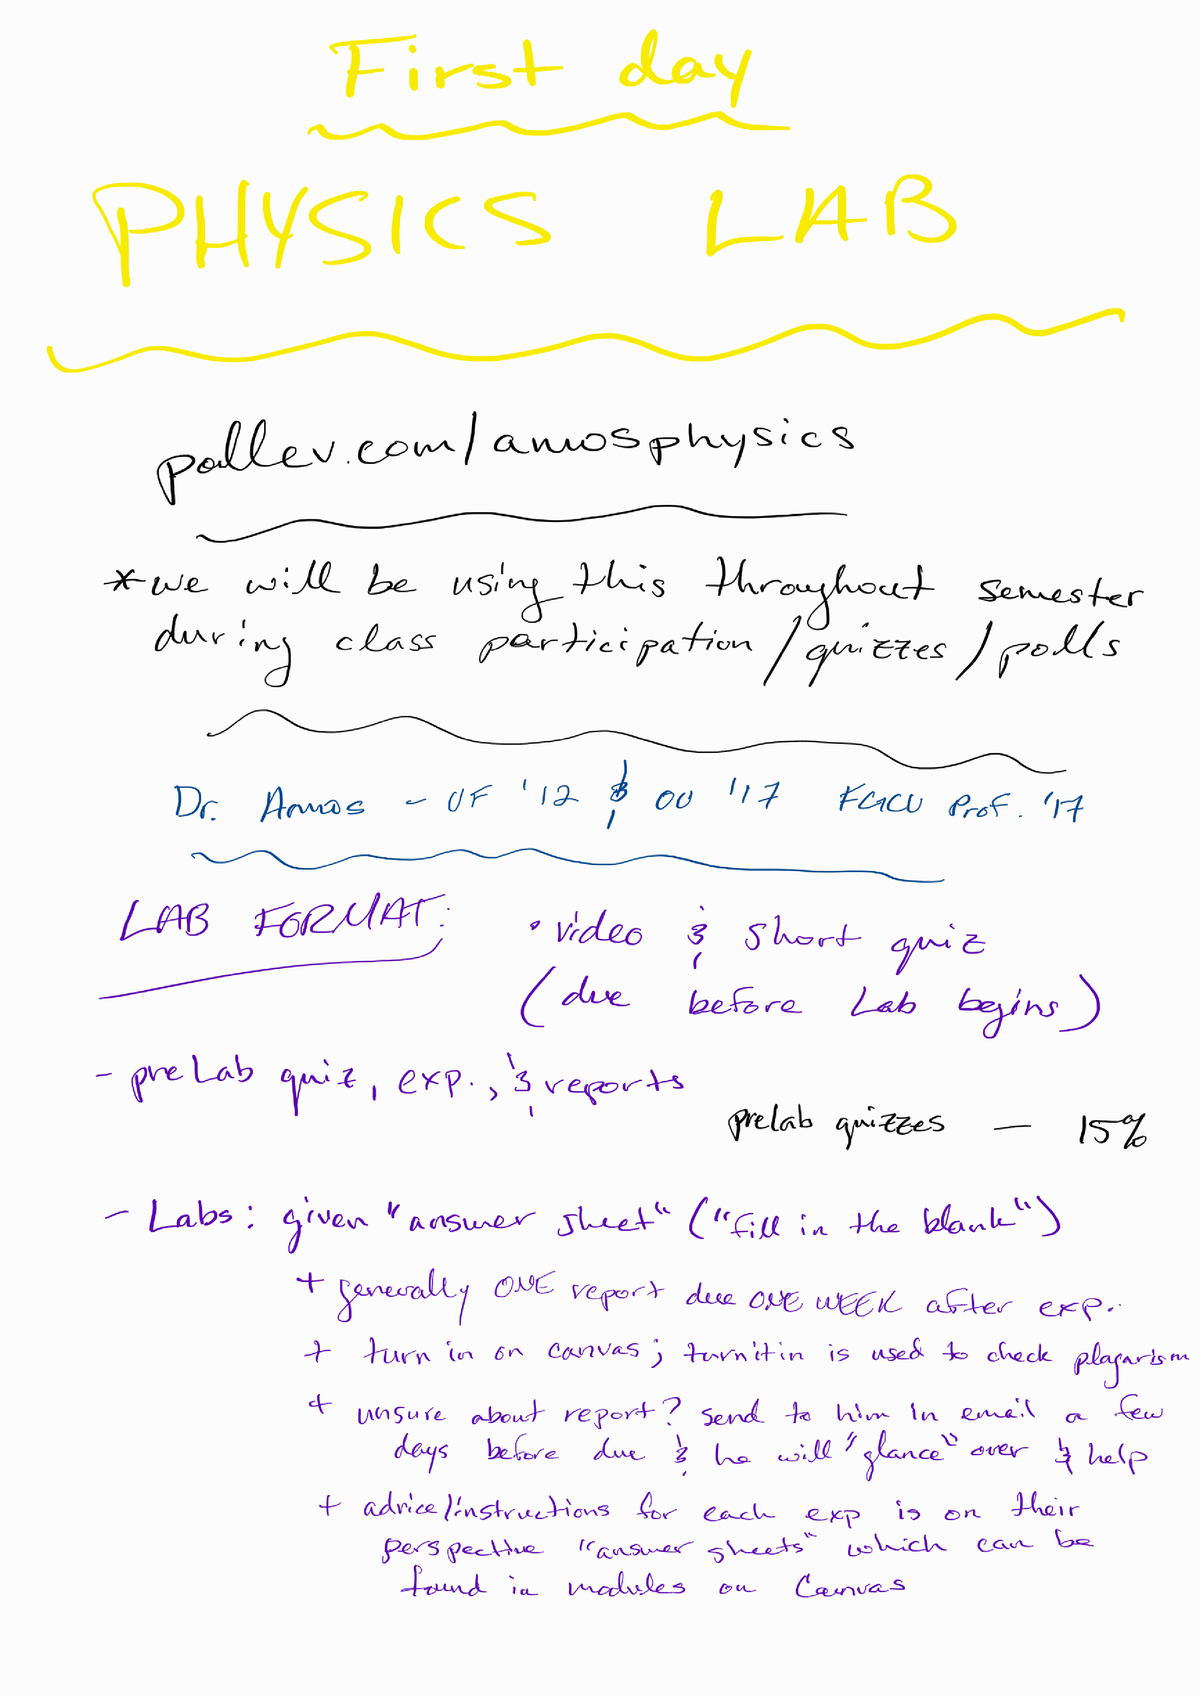 First day
PHYSICS LAB
pollev.com/amosphysics
*we will be using this throughout semester
during class participation/quizzes/polls
Dr. Amos - UF '12 & OU '17 FGCU Prof. '17
LAB FORMAT:
• video & short quiz
(due before Lab begins)
- preLab quiz, exp., & reports
prelab quizzes — 15%
- Labs: given "answer sheet" ("fill in the blank")
+ generally ONE report due ONE WEEK after exp..
+ turn in on canvas; turnitin is used to check plagarism
+ unsure about report? send to him in email a few
days before due & he will "glance" over & help
+ advice/instructions for each exp is on their
perspective "answer sheets" which can be
found in modules on Canvas